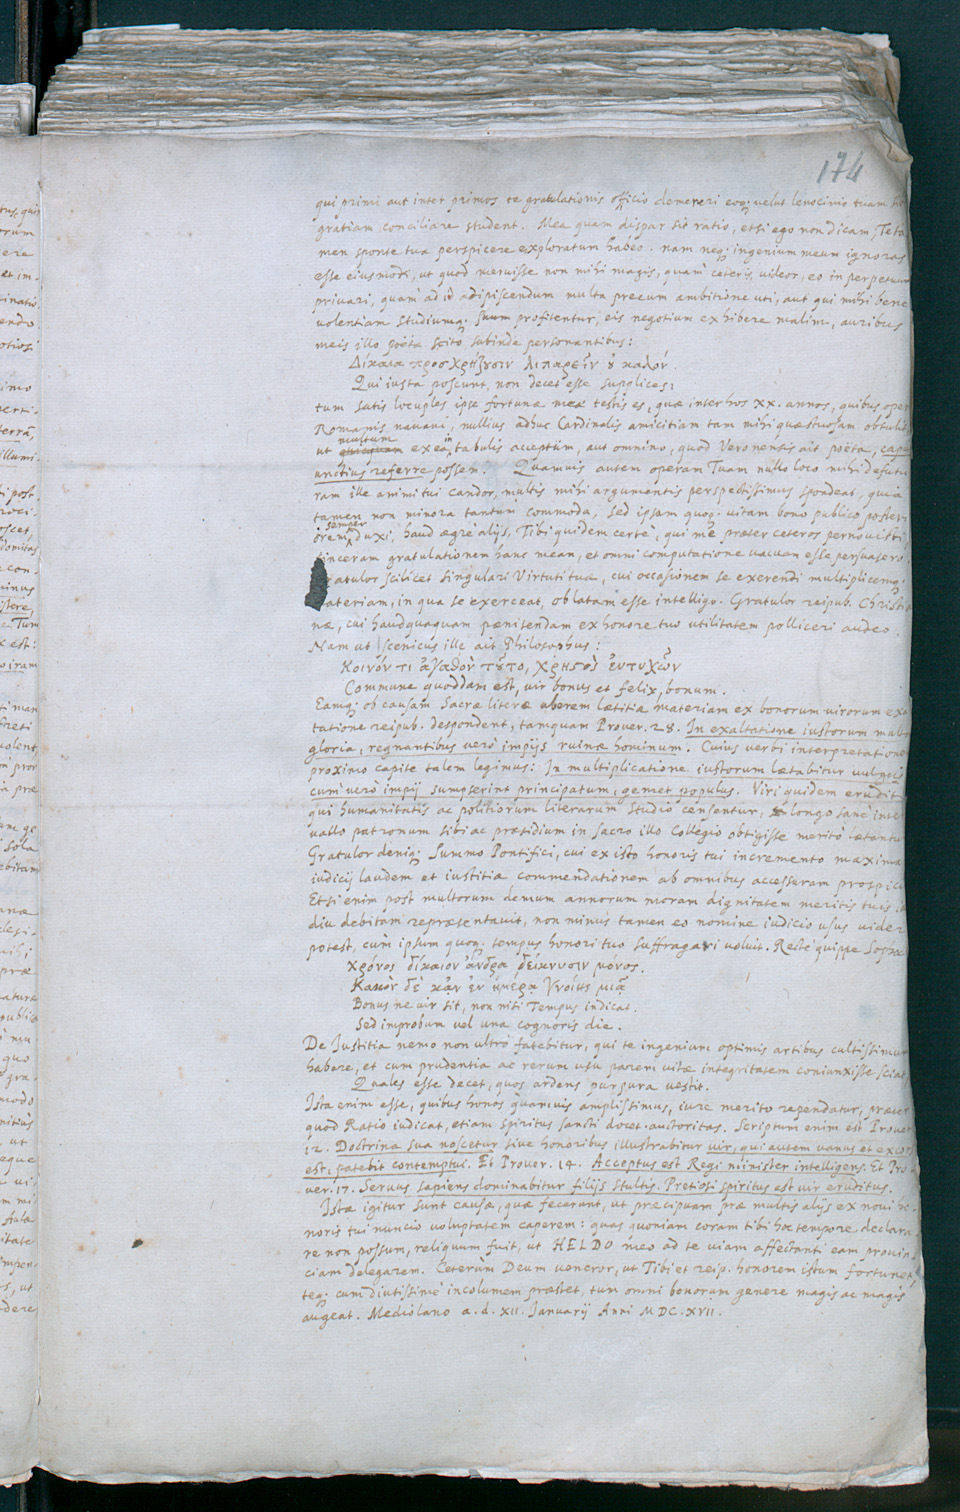 174
qui primi aut inter primos te gratulationis officio demereri eoq; velut lenocinio tuam sibi
gratiam conciliare student. Mea quam dispar sit ratio, etsi ego non dicam, Te ta
men sponte tua perspicere exploratum habeo. nam neq; ingenium meum ignoras
esse eiusmodi, ut quod meruisse non mihi magis, quàm ceteris, videor, eo in perpetuum
privari, quam ad id adipiscendum multa precum ambitione uti, aut qui mihi bene
volentiam studiumq; suum profitentur, eis negotium exhibere malim, auribus
meis illo poëtæ scito subinde personantibus:
Δίκαια προσχρῄζουσιν λιπαρεῖν ȣ καλόν.
Qui iusta poscunt, non decet esse supplices:
tum satis locuples ipse fortunæ meæ testis es, quæ inter hos XX. annos, quibus oper
Romanis navavi, nullius adhuc Cardinalis amicitiam tam mihi quæstuosam obtulit
multum in
ut ex eâ tabulis acceptum, aut omnino, quod Veronensis ait poëta, caput
unctius referre possem. Quamuis autem operam Tuam nullo loco mihi defutu
ram ille animi tui candor, multis mihi argumentis perspectissimus spondeat, quia
tamen non minora tantum commoda, sed ipsam quoq; vitam bono publico posteri
semper
orem duxi, haud ægrè alijs, Tibi quidem certè, qui me præter ceteros pernovisti,
sinceram gratulationem hanc meam, et omni computatione vacuam esse persuasero.
ratulor scilicet singulari Virtuti tuæ, cui occasionem se exerendi multiplicemq;
ateriam, in qua se exerceat, oblatam esse intelligo. Gratulor reipub. Christia
næ, cui haudquaquam pænitendam ex honore tuo utilitatem polliceri audeo.
Nam ut scenicus ille ait Philosophus:
Κοινόν τι ἀγαθὸν τȣτο, χρηστὸς εὐτυχῶν
Commune quoddam est, vir bonus et felix, bonum.
Eamq; ob causam Sacræ literæ uberem lætitiæ materiam ex bonorum virorum exal
tatione reipub. despondent, tamquam Prover. 28. In exaltatione iustorum multa
gloria, regnantibus verò impijs ruinæ hominum. Cuius verbi interpretatione
proximo capite talem legimus: In multiplicatione iustorum lætabitur vulgus
cum verò impij sumpserint principatum, gemet populus. Viri quidem eruditi
qui humanitatis ac politiorum literarum studio censentur, longo sanè inter
vallo patronum sibi ac præsidium in sacro illo Collegio obtigisse meritò lætantur
Gratulor deniq; Summo Pontifici, cui ex isto honoris tui incremento maxima
iudicij laudem et iustitiæ commendationem ab omnibus accessuram prospicio
Etsi enim post multorum demum annorum moram dignitatem meritis tuis ia
diu debitam repræsentavit, non minus tamen eo nomine iudicio usus videri
potest, cùm ipsum quoq; tempus honori tuo suffragari voluit. Rectè quippe Sophoc
Χρόνος δίκαιον ἄνδρα δείκνυσιν μόνος.
Κακὸν δὲ κἂν ἐν ἡμέρᾳ γνοίης μιᾷ
Bonus ne vir sit, non nisi Tempus indicat.
Sed improbum vel una cognoris die.
De Iustitia nemo non ultrò fatebitur, qui te ingenium optimis artibus cultissimum
habere, et cum prudentia ac rerum usu parem vitæ integritatem coniunxisse sciat
Quales esse decet, quos ardens purpura vestit.
Ista enim esse, quibus honos quamvis amplissimus, iure merito rependatur, præter
quod Ratio iudicat, etiam spiritus sancti docet auctoritas. Scriptum enim est Prover
12. Doctrina sua noscetur sive honoribus illustrabitur vir, qui autem vanus et excors
est, patebit contemptui. Et Prover. 14. Acceptus est Regi minister intelligens. Et Pro
ver. 17. Servus sapiens dominabitur filijs stultis. Pretiosi spiritus est vir eruditus.
Istæ igitur sunt causæ, quæ fecerunt, ut præcipuam præ multis alijs ex novi ho
noris tui nuncio voluptatem caperem: quas quoniam coram tibi hoc tempore declara
re non possum, reliquum fuit, ut HELDO meo ad te viam affectanti eam provin
ciam delegarem. Ceterùm Deum veneror, ut Tibi et reip. honorem istum fortunet,
teq; cum diutissimè incolumem præstet, tum omni bonorum genere magis ac magis
augeat. Mediolano a. d. XII. Ianuarij Anni MDC.XVII.